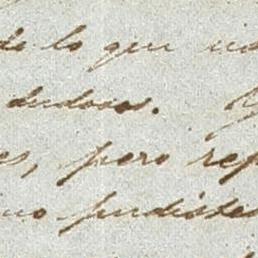 de lo que
dudoso.
es, pero rep
no pudiste